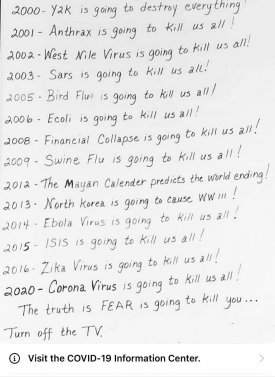 2000- Y2K is going to destroy everything!
2001- Anthrax is going to kill us all!
2002-West Nile Virus is going to kill us all!
2003- Sars is going to kill us all!
2005- Bird Flu is going to kill us all!
2006- Ecoli is going to kill us all!
2008- Financial Collapse is going to kill us all!
2009- Swine Flu is going to kill us all!
2012-The Mayan Calender predicts the world ending!
2013- North Korea is going to cause WW III!
2014- Ebola Virus is going to kill us all!
2015- ISIS is going to kill us all!
2016- Zika Virus is going to kill us all!
2020- Corona Virus is going to kill us all!
The truth is FEAR is going to kill you...
Turn off the TV.
Visit the COVID-19 Information Center.